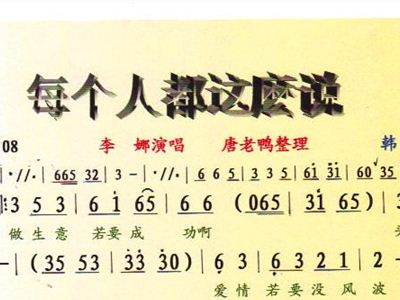 每个人都这麽说
08 李 娜演唱 唐老鸭整理 韩
·//· | 665 32 | 3 - | ·//· | 6 65 3 535 61 31 | 60 √35
: 3 5 3 | 6 1 65 | 6 6 (065 31 65) | 3
做 生 意 若要 成 功啊
- | (35 53 33 30) | 6 3 6 3 2 3 5 | -
爱 情 若 要 没 风 波